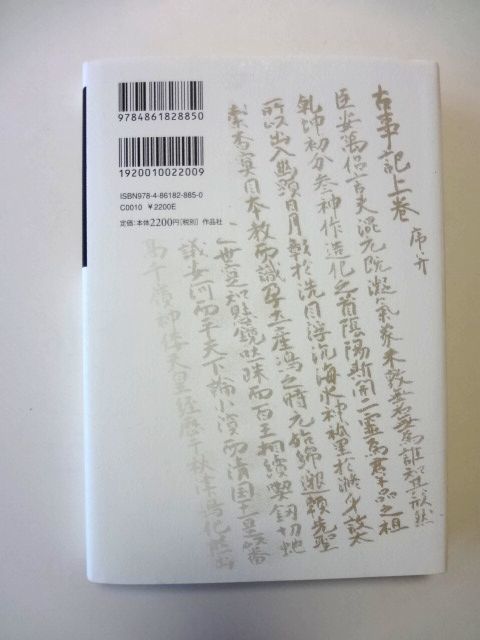 9784861828850
1920010022009
ISBN978-4-86182-885-0
C0010 ¥2200E
定価:本体2200円(税別) 作品社
古事記上巻 序并
臣安萬侶言夫混元既凝氣象未效無名無為誰知其形然
乾坤初分参神作造化之首陰陽斯開二霊為群品之祖
所以出入幽顕日月彰於洗目浮沉海水神祇呈於滌身故太
素杳冥因本教而識孕土産嶋之時元始綿邈頼先聖
之世寔知懸鏡吐珠而百王相續喫釼切蛇
議安河而平天下論小濱而清国土是以番
高千嶺神倭天皇経歴于秋津嶋化熊出